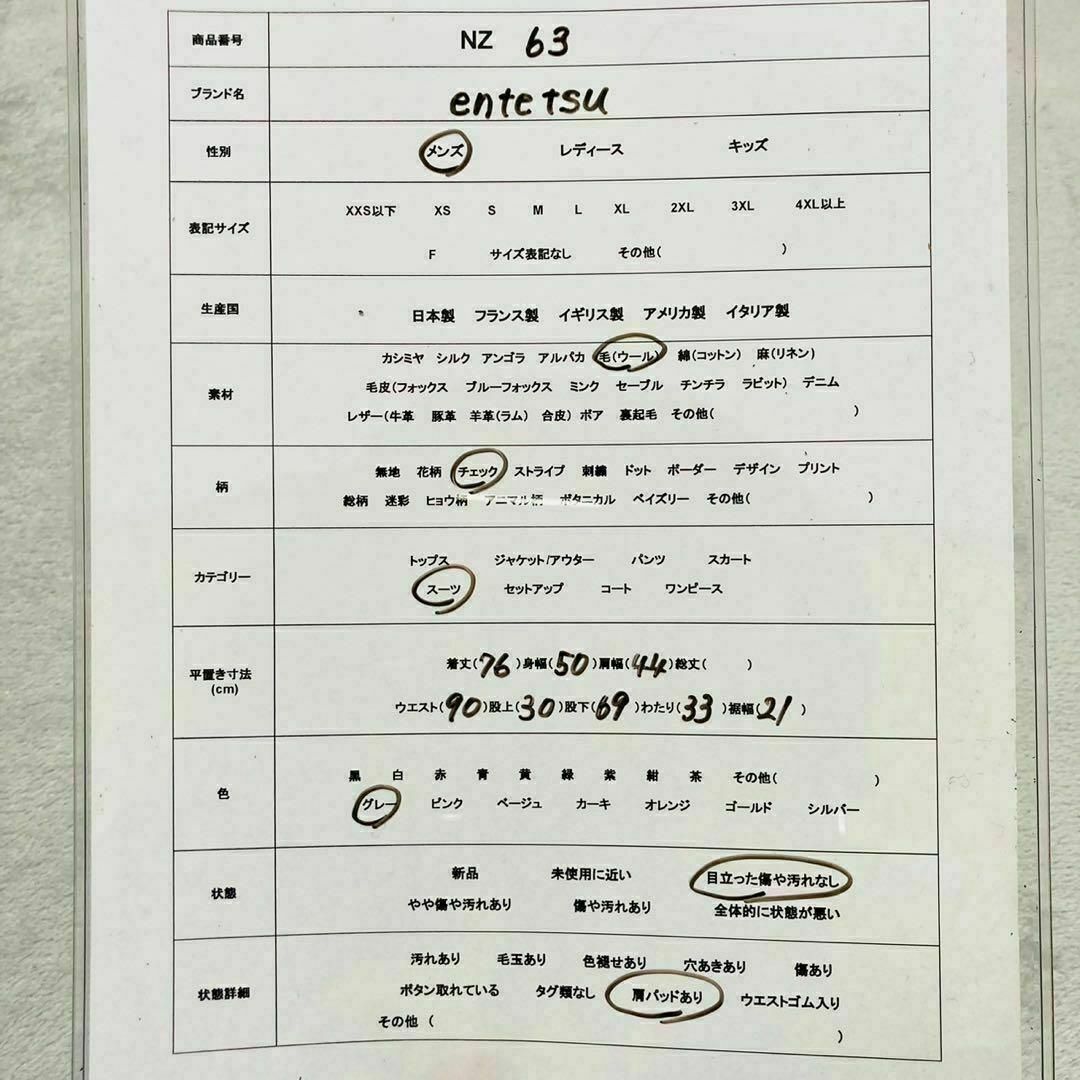 商品番号 NZ 63
ブランド名 entetsu
性別 メンズ レディース キッズ
XXS以下 XS S M L XL 2XL 3XL 4XL以上
表記サイズ
F サイズ表記なし その他( )
生産国 日本製 フランス製 イギリス製 アメリカ製 イタリア製
カシミヤ シルク アンゴラ アルパカ 毛(ウール) 綿(コットン) 麻(リネン)
素材 毛皮(フォックス ブルーフォックス ミンク セーブル チンチラ ラビット) デニム
レザー(牛革 豚革 羊革(ラム) 合皮) ボア 裏起毛 その他( )
無地 花柄 チェック ストライプ 刺繍 ドット ボーダー デザイン プリント
柄
総柄 迷彩 ヒョウ柄 アニマル柄 ボタニカル ペイズリー その他( )
トップス ジャケット/アウター パンツ スカート
カテゴリー
スーツ セットアップ コート ワンピース
着丈(76)身幅(50)肩幅(44)総丈( )
平置き寸法
(cm)
ウエスト(90)股上(30)股下(69)わたり(33)裾幅(21)
黒 白 赤 青 黄 緑 紫 紺 茶 その他( )
色
グレー ピンク ベージュ カーキ オレンジ ゴールド シルバー
新品 未使用に近い 目立った傷や汚れなし
状態
やや傷や汚れあり 傷や汚れあり 全体的に状態が悪い
汚れあり 毛玉あり 色褪せあり 穴あきあり 傷あり
状態詳細 ボタン取れている タグ類なし 肩パッドあり ウエストゴム入り
その他 ( )